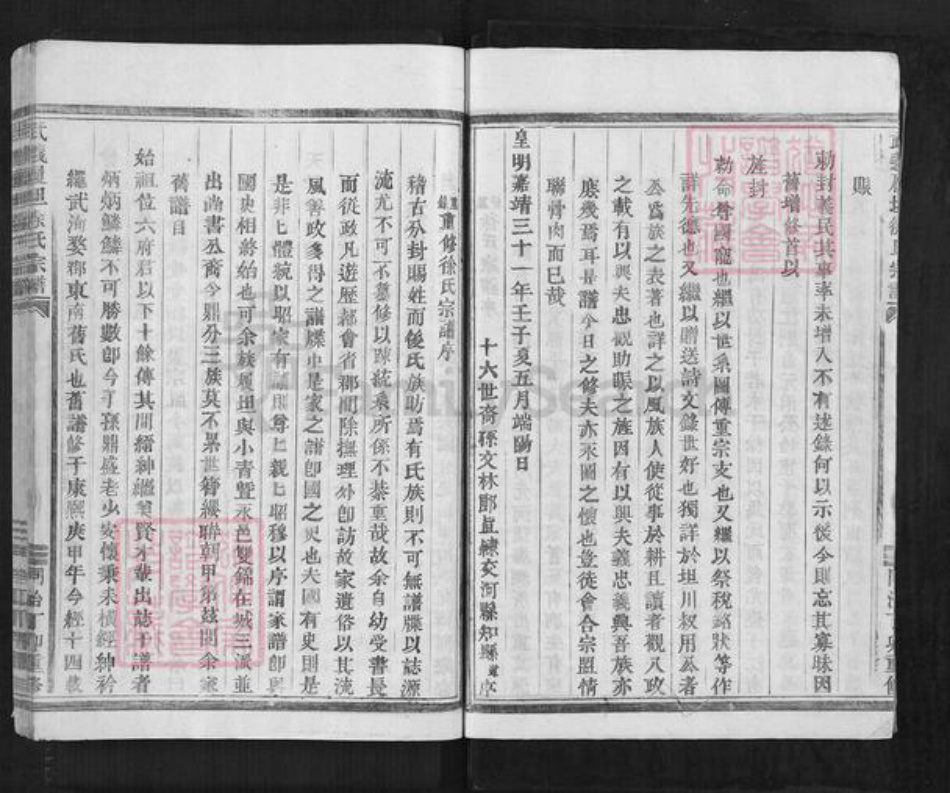 賑
勅封義民其事率未增入不有述錄何以示後今則忘其寡昧因
舊增修首以
旌封
勅命尊國寵也繼以世系圖傳重宗支也又繼以祭稅銘狀等作
詳先德也又繼以贈送詩文錄世好也獨詳於坦川叔用丞者
丞爲族之表著也詳之以風族人使從事於耕且讀者觀入政
之載有以興夫忠觀助賑之旌因有以興夫義忠義興吾族亦
庶幾焉耳是譜今日之修夫亦永圖之懷也豈徒會合宗盟情
聯骨肉而已哉
皇明嘉靖三十一年壬子夏五月端陽日
十六世裔孫文林郎直隷交河縣知縣序
重修徐氏宗譜序
稽古分封賜姓而後氏族昉焉有氏族則不可無譜牒以誌源
流尤不可不纂修以踈統系所係不綦重哉故余自幼受書長
而從政凡遊歷都會省郡間除撫理外卽訪故家遺俗以其流
風善政多得之譜牒中是家之譜卽國之史也夫國有史則是
是非非體統以昭家有譜則尊上親上昭穆以序謂家譜卽與
國史相終始也可余族履坦與小青暨永邑雙錦在城三派並
出尚書公裔今鼎分三族莫不累世簪纓聯朝甲第玆閱余家
舊譜自
始祖位六府君以下十餘傳其間縉紳繼美賢才輩出誌于譜者
炳炳麟麟不可勝數卽今子孫鼎盛老少安懷秉耒橫經紳衿
繩武洵婺郡東南舊氏也舊譜修于康熙庚申年今經十四載